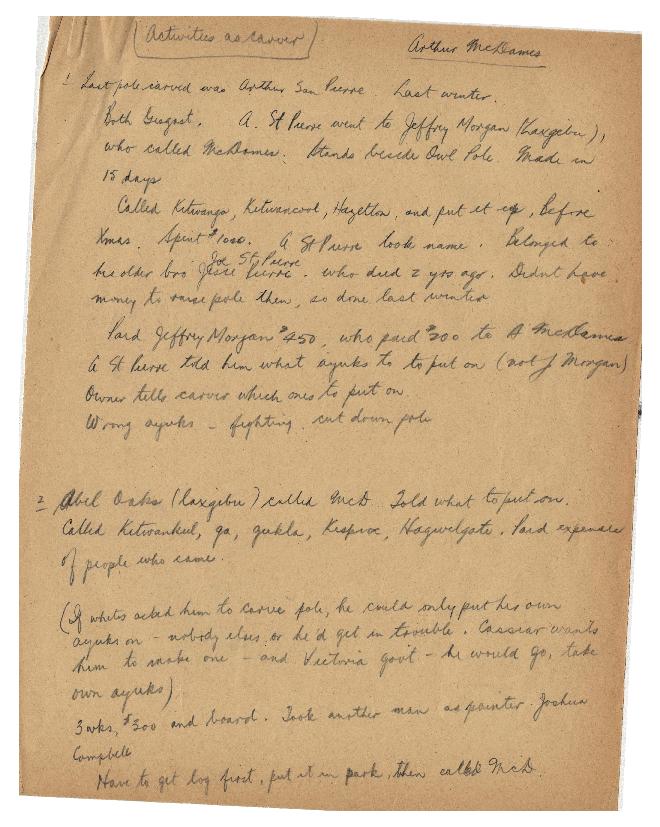 Activities as carver
Arthur McDames
1 Last pole carved was Arthur San Pierre. Last winter.
Both Gisgast. A. St Pierre went to Jeffrey Morgan (Laxgebu),
who called McDames. Stands beside Owl Pole. Made in
15 days
Called Kitwanga, Kitwancool, Hazelton, and put it up, Before
Xmas. Spent $1000. A St Pierre took name. Belonged to
Joe St Pierre
his older bro Jesse Pierre. who died 2 yrs ago. Didnt have
money to raise pole then, so done last winter
Paid Jeffrey Morgan $450, who paid $200 to A McDames
A St Pierre told him what ayuks to to put on (not J Morgan)
Owner tells carver which ones to put on.
Wrong ayuks – fighting. cut down pole
2 Abel Oaks (laxgebu) called McD. Told what to put on.
Called Kitwankul, ga, gukla, Kispiox, Hagwelgate. Paid expenses
of people who came.
(If whites asked him to carve pole, he could only put his own
ayuks on – nobody elses or he'd get in trouble. Cassiar wants
him to make one – and Victoria gov't – he would go, take
own ayuks)
3 wks, $300 and board. Took another man as painter. Joshua
Campbell
Have to get log first, put it in park, then called McD.